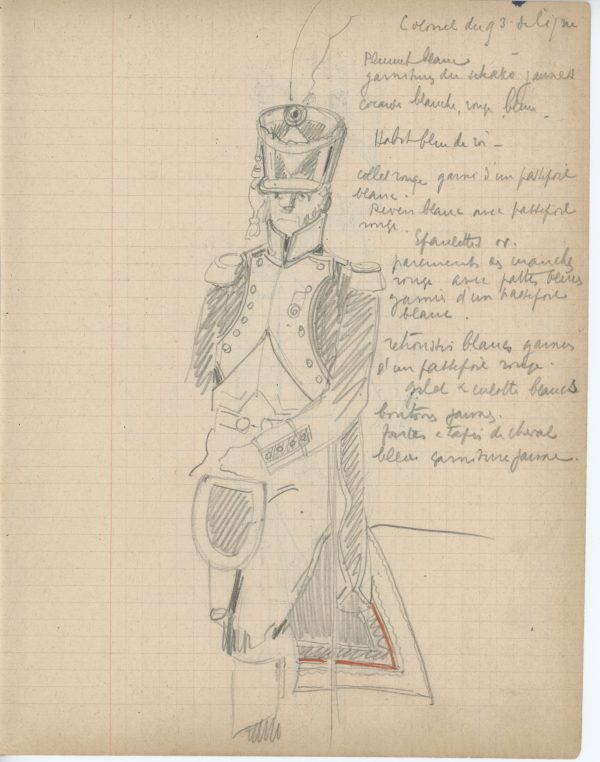 Colonel du 93. de ligne
Plumet blanc
garnitures du schako jaunes
cocarde blanche, rouge, bleu.
Habit bleu de roi -
collet rouge garni d'un passepoil
blanc.
Revers blanc avec passepoil
rouge.
Epaulettes or.
parements des manches
rouge avec pattes bleues
garnies d'un passepoil
blanc.
retroussis blancs garnis
d'un passepoil rouge.
gilet & culotte blancs
boutons jaunes.
fontes & tapis de cheval
bleu garniture jaune.